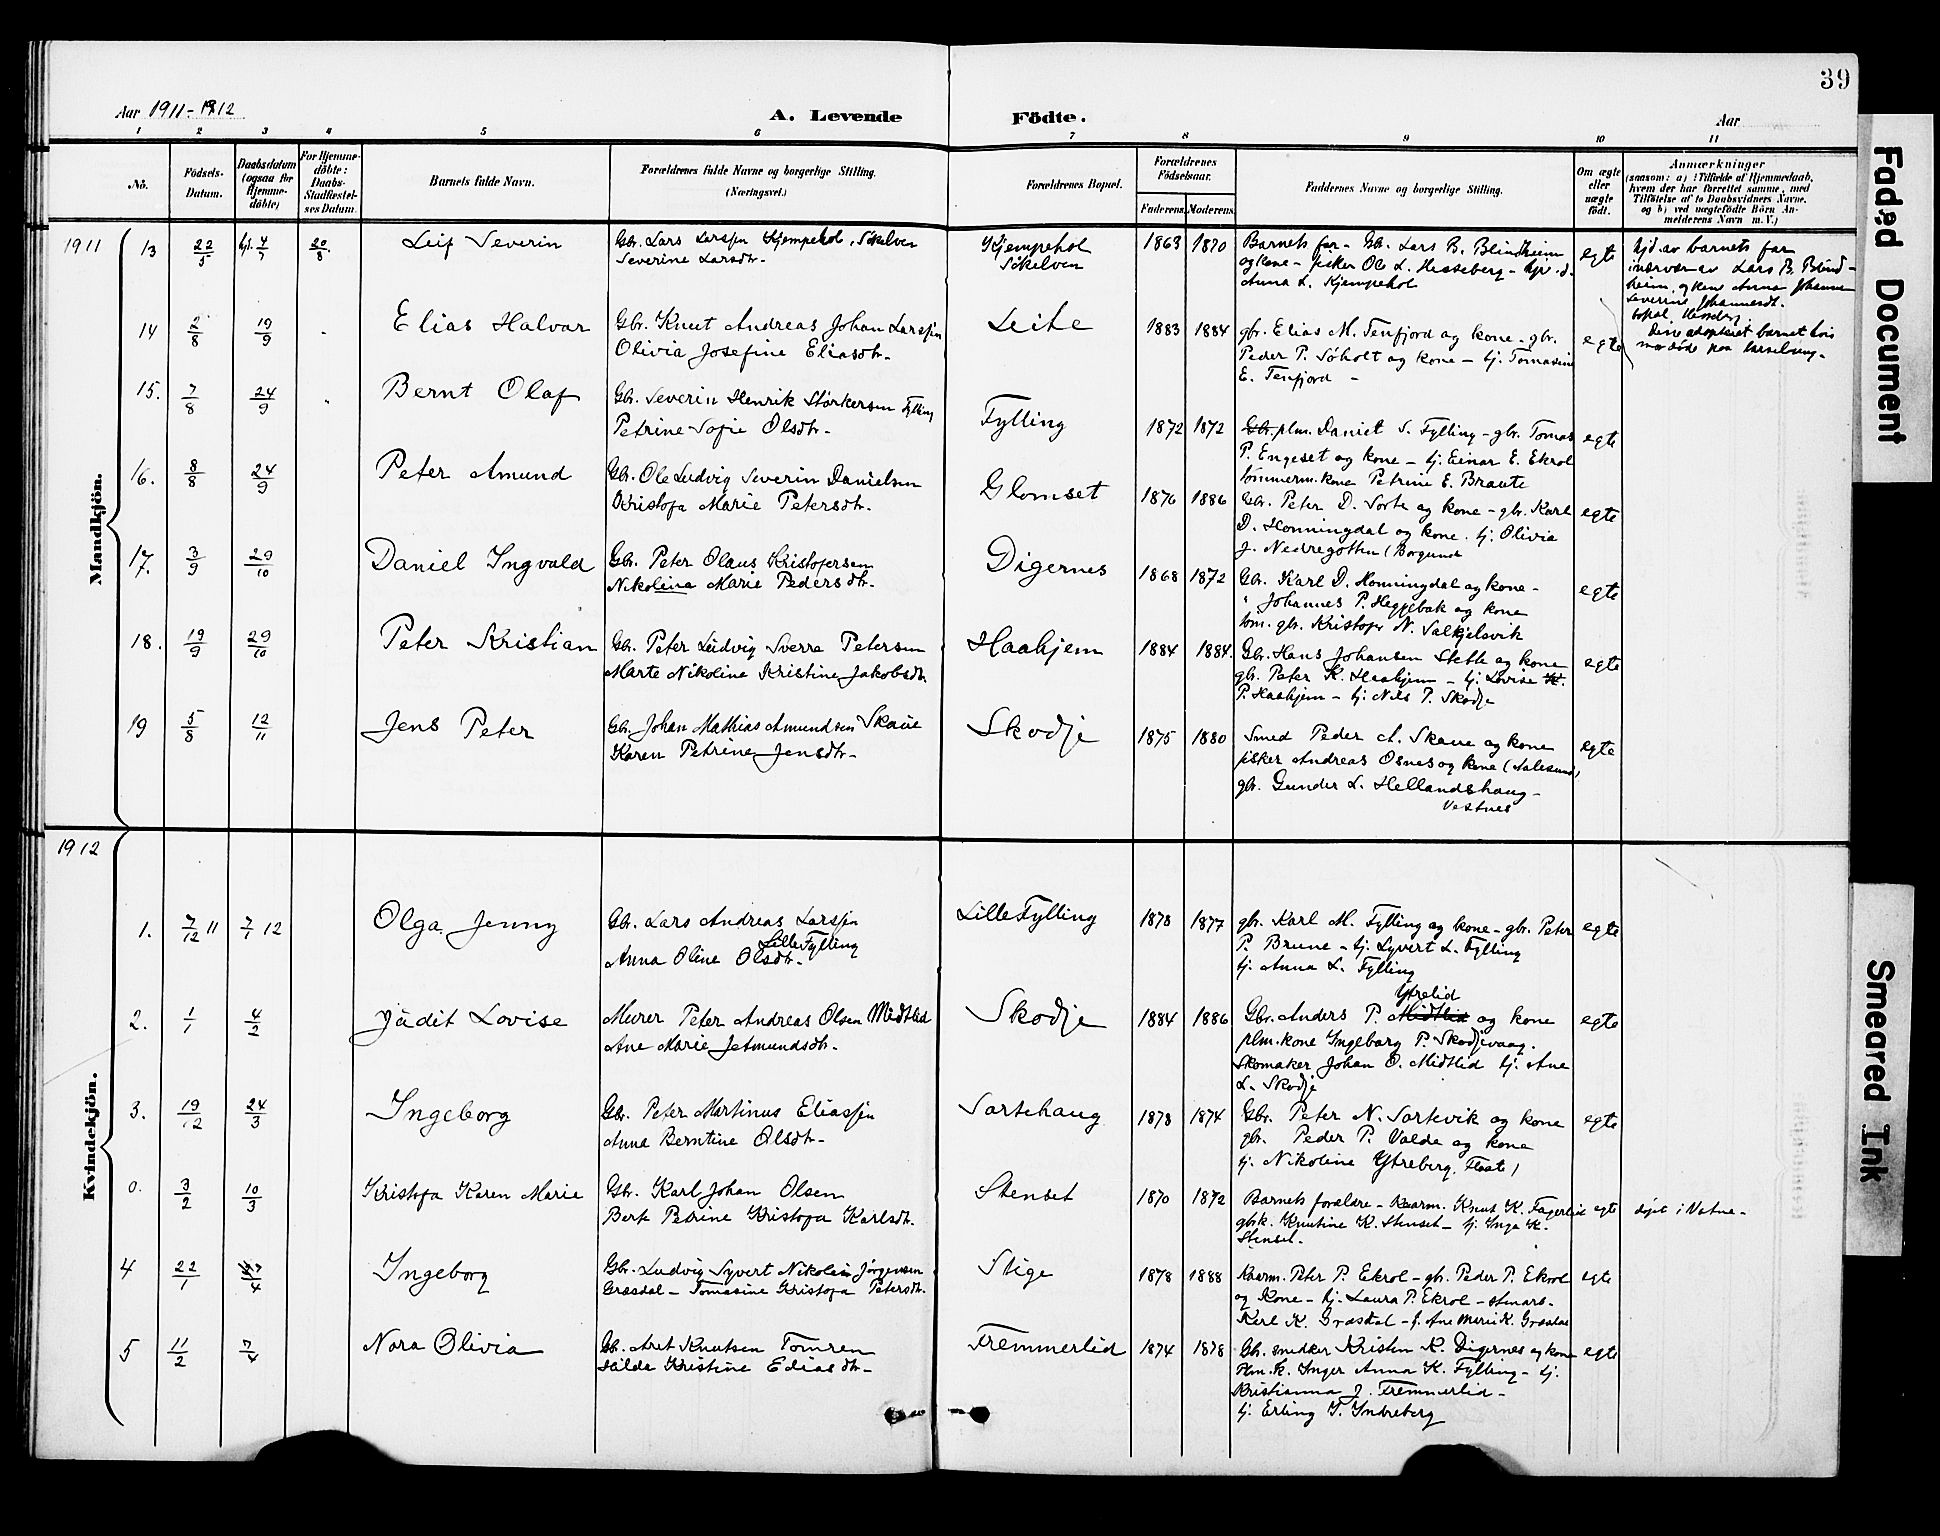 39
Aar 1911-1912
A. Levende Födte.
Aar
1 2 3 4 5 6 7 8 9 10 11
No.
Födsels-Datum.
Daabsdatum (ogsaa for Hjemmedöbte)
For Hjemmedöbte: Daabs-Stadfæstelses Datum.
Barnets fulde Navn.
Forældrenes fulde Navne og borgerlige Stilling. (Næringsvei.)
Forældrenes Bopæl.
Forældrenes Födselsaar.
Faderens. Moderens.
Faddernes Navne og borgerlige Stilling.
Om ægte eller uægte født.
Anmærkninger
(saasom: a) i Tilfælde af Hjemmedaab,
hvem der har forrettet samme, med
Tilföielse af to Daabsvidners Navne.
og b) ved uægtefödte Börn An-
melderens Navn m. V.)
1911
Mandkjön.
13 22/5 hj. 4/7 20/8 Leif Severin
Gbr. Lars Larssen Kjempehol, Sökelven
Severine Larsdtr.
Kjempehol
Sökelven
1863 1870
Barnets far - Gbr. Lars B. Blindheim
og kone - fisker Ole L. Hesseberg -
Anna L. Kjempehol
egte
hjd. av barnets far
i nærvær av Lars B. Blind-
heim og kone Anna Johanne
Severine Johannesdt.
14 2/8 19/9 Elias Halvar
Gbr. Knut Andreas Johan Larssen
Olivia Josefine Eliasdtr.
Leite
1883 1884
gbr. Elias M. Tenfjord og kone - gbr.
Peder P. Söholt og kone - tj. Tomasine
E. Tenfjord -
egte
15. 7/8 24/9 Bernt Olaf
Gbr. Severin Henrik Størkersen Fylling
Petrine Sofie Olsdtr.
Fylling
1872 1872
Gbr. plm. Daniel S. Fylling - gbr. Tomas
P. Engeset og kone - tj. Einar E. Ekrol
tömmerm. kone Petrine E. Braute
egte
16. 8/8 24/9 Peter Amund
Gbr. Ole Ludvig Severin Danielsen
Kristofa Marie Petersdtr.
Glomset
1876 1886
Gbr. Peter D. Sorte og kone - gbr. Karl
D. Honningdal og kone. tj. Olivia
J. Nedregotten (Borgund
egte
17. 3/9 29/10 Daniel Ingvald
Gbr. Peter Olaus Kristofersen
Nikolina Marie Pedersdtr.
Digernes
1868 1872
Gbr. Karl D. Honningdal og kone -
" Johannes P. Heggebak og kone
tom. gbr. Kristofer N. Valkjelsvik
egte
18. 19/9 29/10 Peter Kristian
Gbr. Peter Ludvig Sverre Petersen
Marte Nikoline Kristine Jakobsdtr.
Haahjem
1884 1884.
Gbr. Hans Johansen Stette og kone
gbr. Peter K. Haahjem - tj. Lovise
P. Haahjem - tj. Nils P. Skodje
egte
19 5/8 12/11 Jens Peter
Gbr. Johan Mathias Amundsen Skaue
Karen Petrine Jensdtr.
Skodje
1875 1880
Smed Peder A. Skaue og kone
fisker Andreas Osnes og kone (Aalesund)
gbr. Gunder L. Hellandshaug -
Vestnes
egte
1912
Kvindekjön.
1. 7/12 11 7/1 12 Olga Jenny
Gbr. Lars Andreas Larssen
Lille Fylling
Anna Oline Olsdtr.
Lille Fylling
1878 1877
gbr. Karl M. Fylling og kone - gbr. Peter
P. Brune - tj. Syvert L. Fylling
tj. Anna L. Fylling
egte
2. 1/1 4/2 Judit Lovise
Murer Peter Andreas Olsen Midtlid
Ane Marie Jetmundsdtr.
Skodje
1884 1886
Ytrelid
Gbr. Anders P. Midtlid og kone
plm. kone Ingeborg P. Skodjevaag.
Skomaker Johan O. Midtlid tj. Ane
L. Skodje
egte
3. 19/12 24/3 Ingeborg
Gbr. Peter Martinus Eliassen
Anna Berntine Olsdtr.
Sortehaug
1878 1874
Gbr. Peter N. Sortevik og kone
gbr. Peder P. Valde og kone
tj. Nikoline Ytreberg
egte
0. 3/2 10/3 Kristofa Karen Marie
Gbr. Karl Johan Olsen
Berte Petrine Kristofa Karlsdtr.
Stenset
1870 1872
Barnets forældre - Knut K. Fagerlie
gbrk. Knutine K. Stenset - tj. Inga K.
Stenset -
egte
döpt i Vatne -
4 22/1 Ingeborg
Gbr. Ludvig Syvert Nikolai Jörgensen
Græsdal - Tomasine Kristofa Petersdtr.
Stige
1878 1888
Peter P. Ekrol - gbr. Peder P. Ekrol
og Kone - tj. Laura P. Ekrol -
Karl K. Græsdal - Ane Marie K. Græsdal
egte
5 11/2 7/4 Nora Olivia
Gbr. Aret Knutsen Tomren
Hilda Kristine Eliasdtr.
Fremmerlid
1874 1878
Gbr. snedker Kristen K. Digernes og kone
Plm. k. Inger Anna K. Fylling - tj.
Kristianna J. Fremmerlid -
tj. Erling T. Indreberg
egte
Faded Document
Smeared Ink